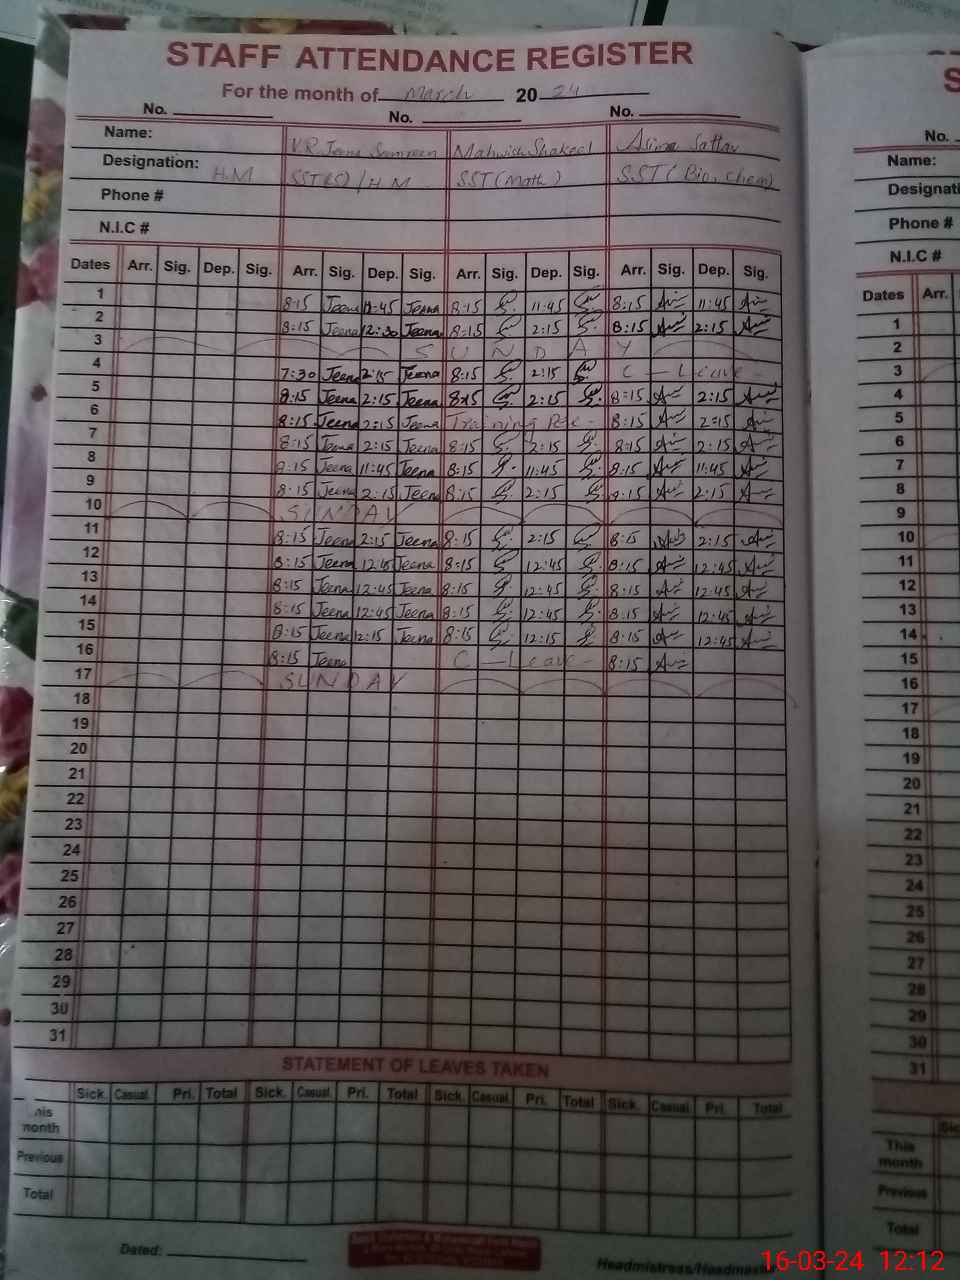 STAFF ATTENDANCE REGISTER
For the month of March 2024
No. No. No.
Name: V.R Jeena Mahwish Shakeel Asima Sattar
Designation: H.M SST(S)/H.M SST(Math) S.ST(Bio, Chem)
Phone #
N.I.C #
Dates Arr. Sig. Dep. Sig. Arr. Sig. Dep. Sig. Arr. Sig. Dep. Sig. Arr. Sig. Dep. Sig.
1 8:15 Jeena 11:45 Jeena 8:15 11:45 8:15 11:45
2 8:15 Jeena 12:30 Jeena 8:15 2:15 8:15 2:15
3 SUNDAY
4 7:30 Jeena 2:15 Jeena 8:15 2:15 C - Leave -
5 8:15 Jeena 2:15 Jeena 8:15 2:15 8:15 2:15
6 8:15 Jeena 2:15 Jeena Training 8:15 2:15
7 8:15 Jeena 2:15 Jeena 8:15 2:15 8:15 2:15
8 8:15 Jeena 11:45 Jeena 8:15 11:45 8:15 11:45
9 8:15 Jeena 2:15 Jeena 8:15 2:15 8:15 2:15
10 SUNDAY
11 8:15 Jeena 2:15 Jeena 8:15 2:15 8:15 2:15
12 8:15 Jeena 12:45 Jeena 8:15 12:45 8:15 12:45
13 8:15 Jeena 12:45 Jeena 8:15 12:45 8:15 12:45
14 8:15 Jeena 12:45 Jeena 8:15 12:45 8:15 12:45
15 8:15 Jeena 12:15 Jeena 8:15 12:15 8:15 12:45
16 8:15 Jeena C - Leave - 8:15
17 SUNDAY
18
19
20
21
22
23
24
25
26
27
28
29
30
31
STATEMENT OF LEAVES TAKEN
Sick. Casual. Pri. Total Sick. Casual. Pri. Total Sick. Casual. Pri. Total Sick. Casual. Pri. Total
month
Previous
Total
Dated:
Headmistress/Headmaster
S
No.
Name:
Designati
Phone #
N.I.C #
Dates Arr.
1
2
3
4
5
6
7
8
9
10
11
12
13
14
15
16
17
18
19
20
21
22
23
24
25
26
27
28
29
30
31
This
month
Previous
Total
16-03-24 12:12